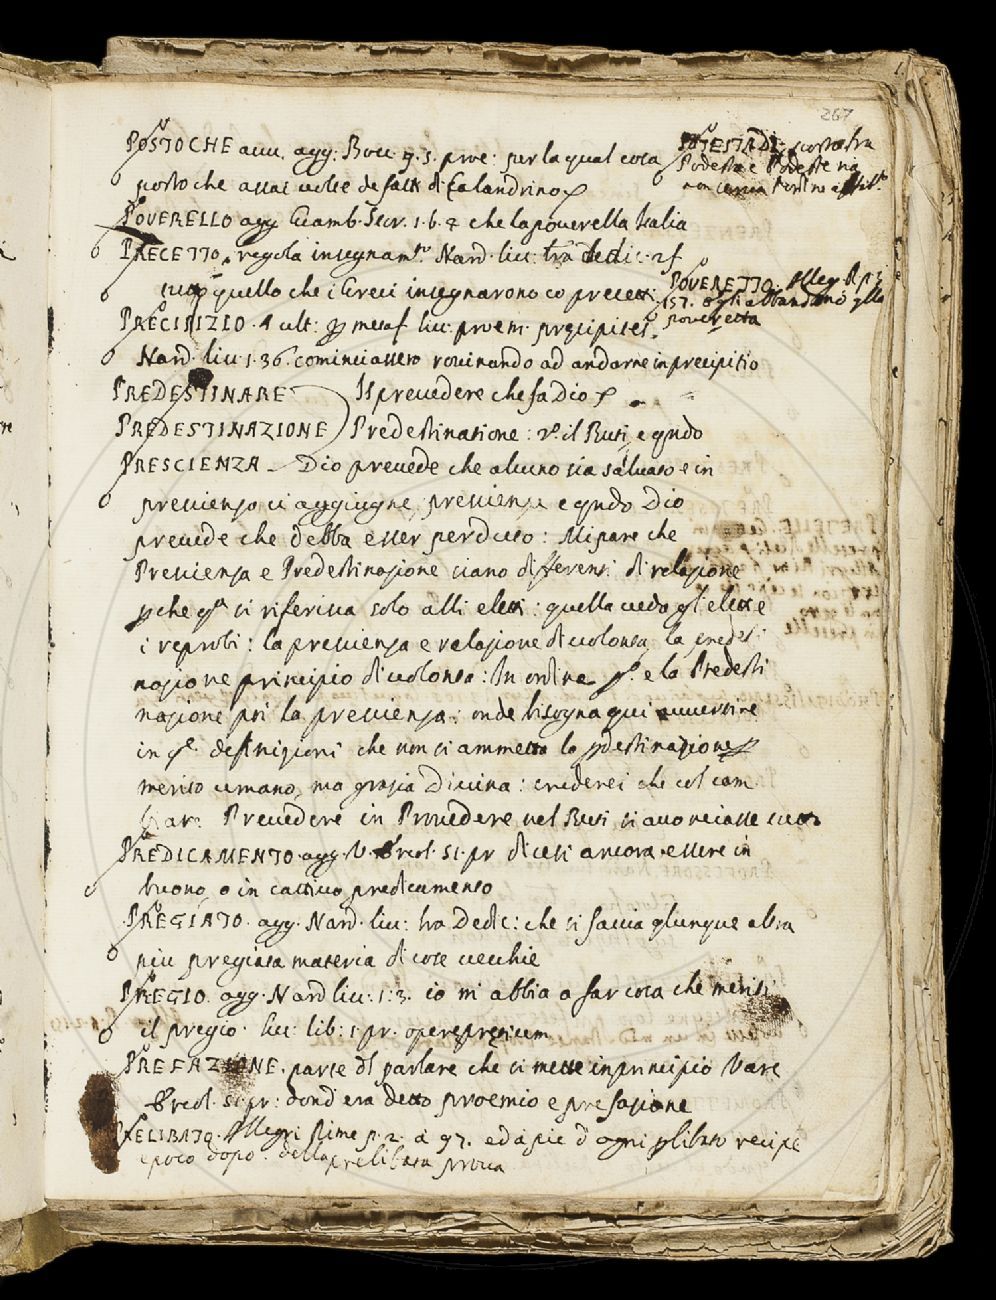 267
POSTO CHE avv. agg: Bocc. 9. 5. proe: per la qual cosa
posto che assai volte de fatti di Calandrino
POTESTADE
Podestà e Podesteria
POVERELLO agg Giamb. Stor. 1. 6. 8 che la poverella Italia
PRECETTO, regola insegnam.to Nard. liv: tra dedic.
quello che i Greci insegnarono co precetti
POVERETTA. Alleg.
157. egli abbandonò
poveretta
PRECIPIZIO. A ult: metaf. liv: proem. præcipites.
Nard. liv. 1. 36. cominciassero rovinando ad andarne in precipitio
PREDESTINARE Il prevedere che fa Dio
PREDESTINAZIONE Predestinatione: v. il Buti, e qndo
PRESCIENZA - Dio prevede che alcuno sia salvato e in
prescienza vi aggiugne, prescienza e qndo Dio
prevede che debba esser perduto: Mi pare che
Prescienza e Predestinazione siano differenti di relazione
pche qta si riferisca solo alli eletti: quella vedo gl'eletti e
i reprobi: la prescienza e relazione di volontà, la predesti
nazione principio di volontà: In ordine p.a e la Predesti
nazione poi la prescienza: onde bisogna qui avvertire
in q.e definizioni che non si ammetta la pdestinazione p
merito umano, ma grazia Divina: crederei che col cam
biar Prevedere in Provedere nel Buti si avvreiasse tutto
PREDICAMENTO. agg. V. Ercol. 51. pr dicesi ancora essere in
buono, o in cattivo predicamento
PREGIATO. agg. Nard. liv: tra Dedic: che si faccia qlunque altra
piu pregiata materia di cose vecchie
PREGIO. agg. Nard liv: 1: 3. io mi abbia a far cosa che meriti
il pregio. liv: lib: 1 pr. operæpretium
PREFAZIONE. parte dl parlare che si mette in principio Varc
Ercol. 51. pr: dond' era detto proemio e prefazione
PRELIBATO. Allegri Rime p. 2. a 97. ed à piè d'ogni plibato recipe
e poco dopo. della prelibata prova